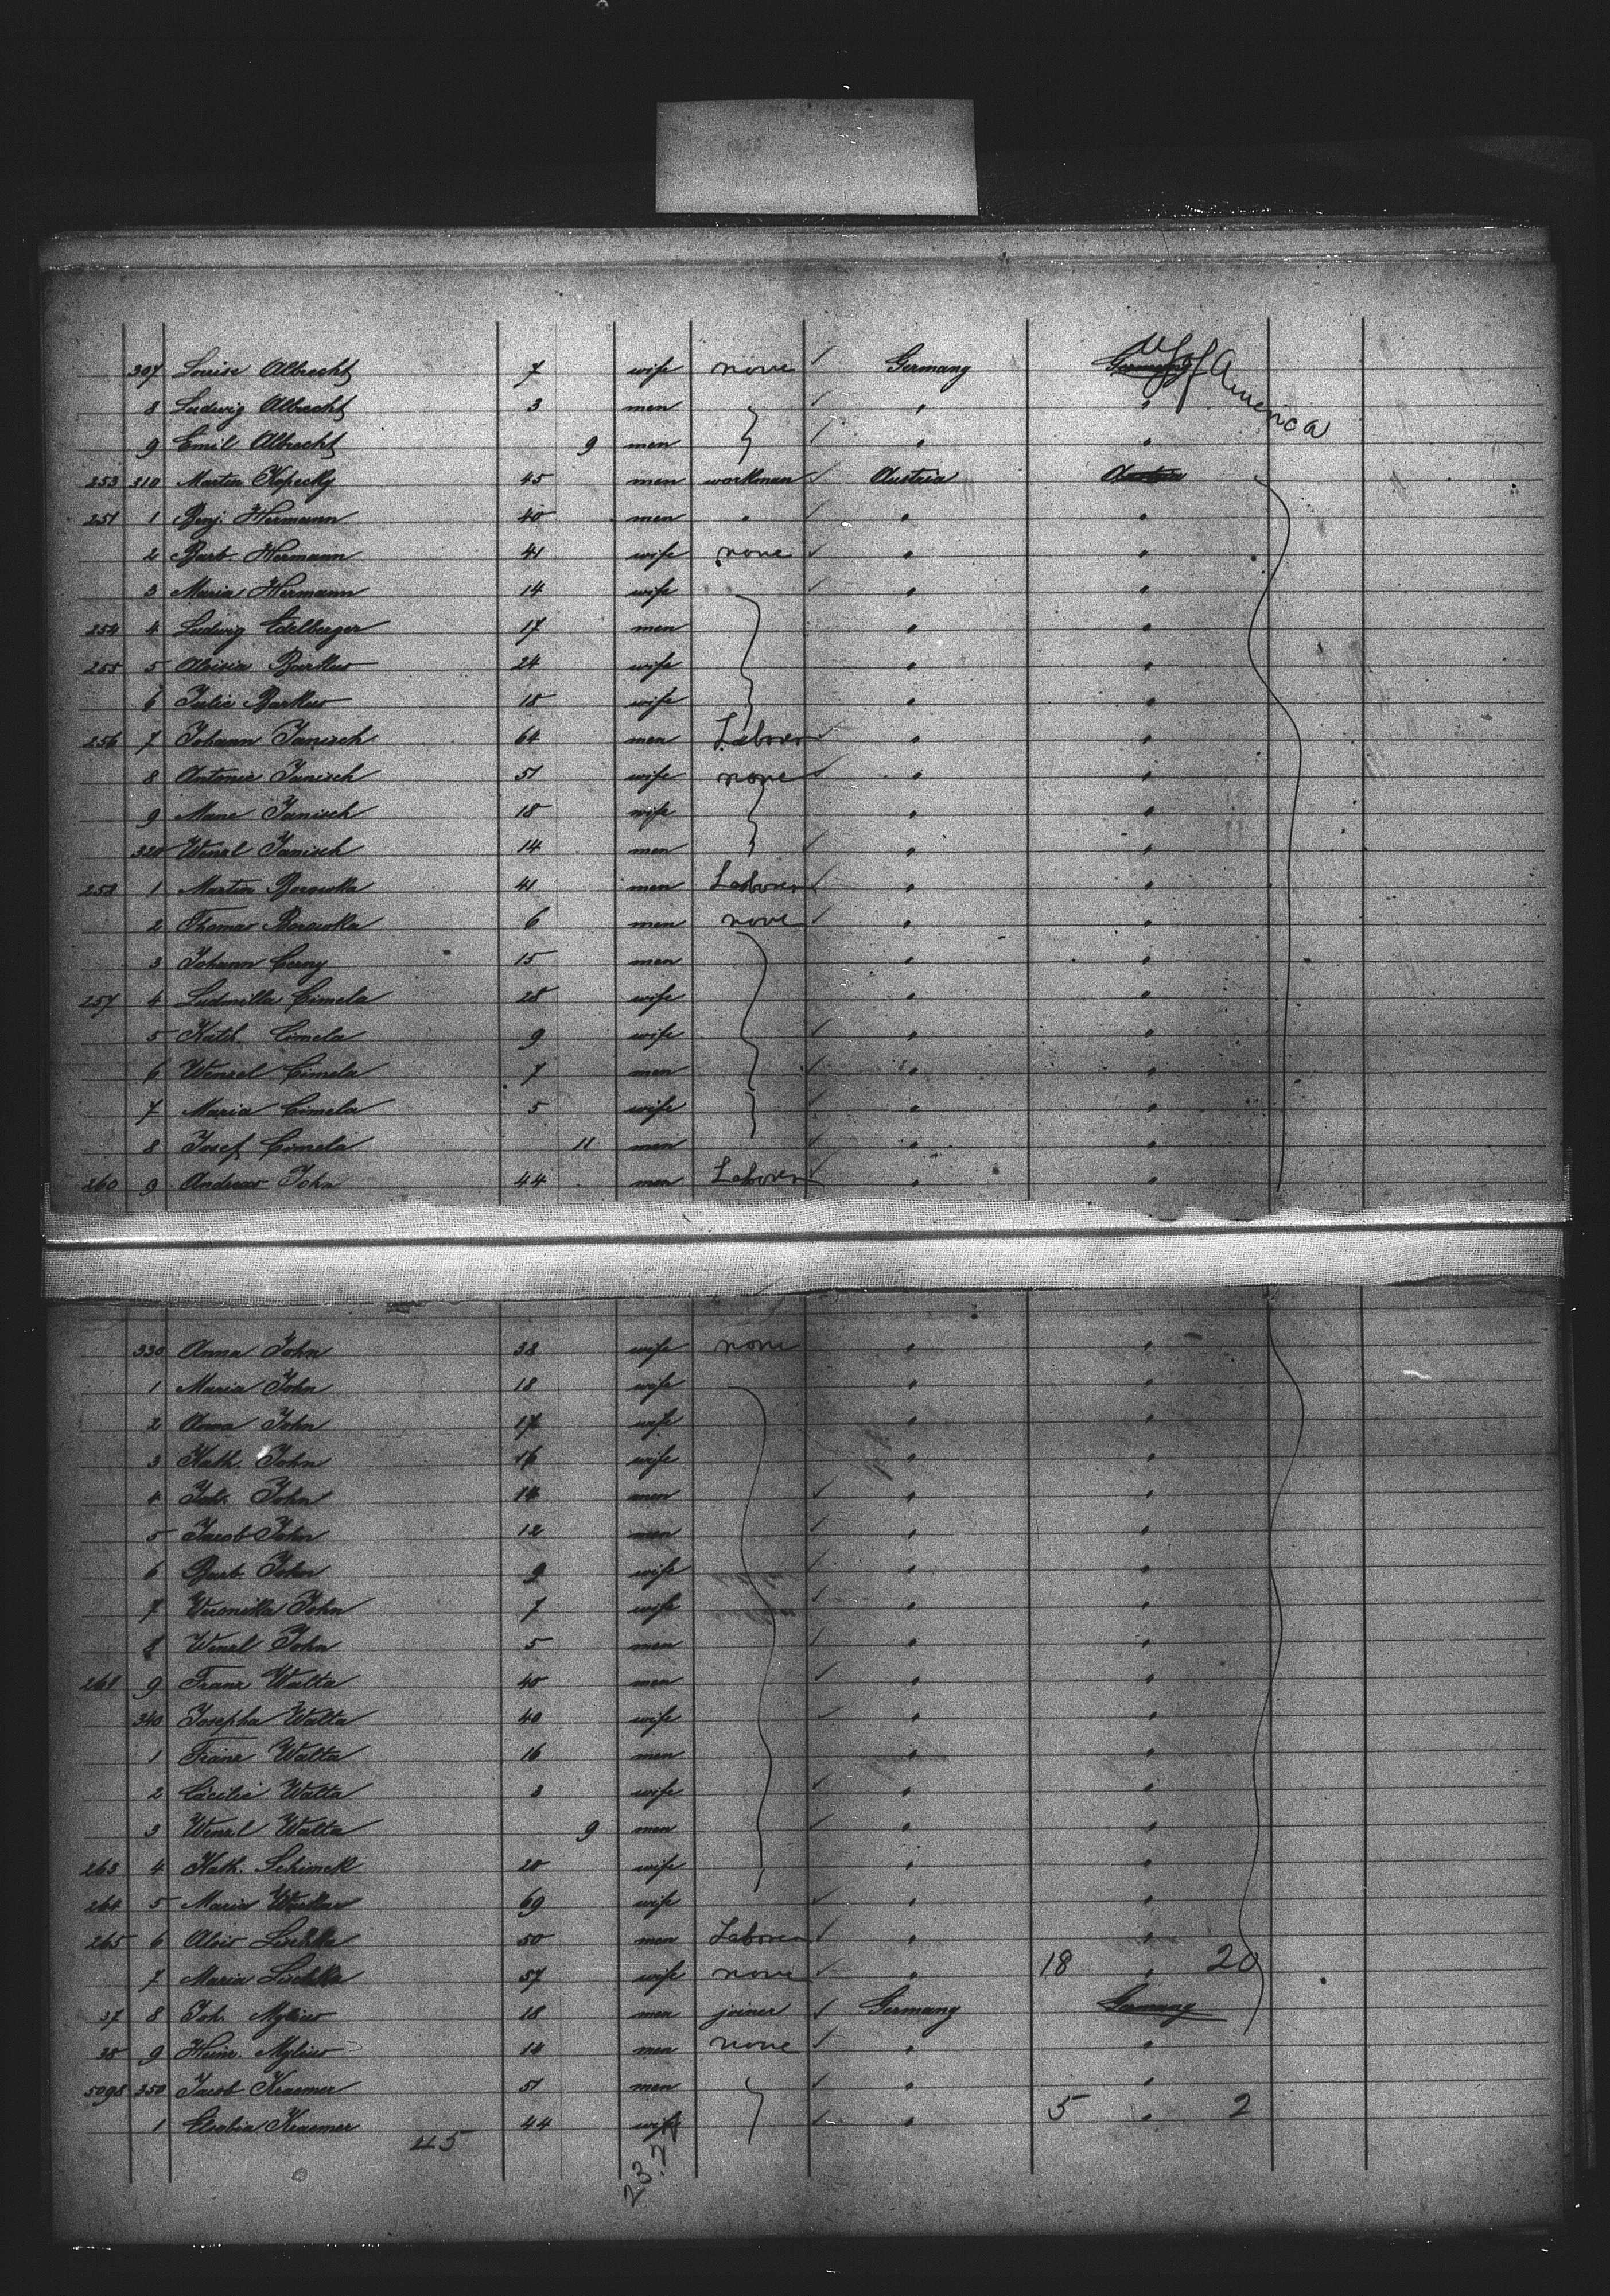 307 Louise Albrecht 7 wife none ✓ Germany Germany U S of America
8 Ludwig Albrecht 3 men ✓ " "
9 Emil Albrecht 9 men ✓ " "
253 310 Martin Kopecky 45 men workman ✓ Austria Austria
251 1 Benj. Hermann 40 men " ✓ " "
2 Barb. Hermann 41 wife none ✓ " "
3 Maria Hermann 14 wife ✓ " "
254 4 Ludwig Edelberger 17 men " "
255 5 Aloisia 24 wife " "
6 Julie 18 wife " "
256 7 Johann Janisch 64 men Laborer ✓ " "
8 Antonie Janisch 51 wife none ✓ " "
9 Marie Janisch 18 wife " "
320 Wenzl Janisch 14 men ✓ " "
258 1 Martin Borowka 41 men Laborer ✓ " "
2 Thomas Borowka 6 men none ✓ " "
3 Johann Cerny 15 men " "
257 4 Ludmilla Cimela 28 wife " "
5 Kath. Cimela 9 wife ✓ " "
6 Wenzel Cimela 7 men ✓ " "
7 Maria Cimela 5 wife ✓ " "
8 Josef Cimela 11 men ✓ " "
260 9 Andreas John 44 men Laborer ✓ " "
330 Anna John 38 wife none " "
1 Maria John 18 wife " "
2 Anna John 17 wife " "
3 Kath. John 16 wife " "
4 John 14 men ✓ " "
5 Jacob John 12 men ✓ " "
6 Barb. John 9 wife ✓ " "
7 John 7 wife ✓ " "
8 Wenzl John 5 men ✓ " "
261 9 Franz Walta 40 men ✓ " "
340 Josepha Walta 40 wife ✓ " "
1 Franz Walta 16 men " "
2 Cäcilie Walta 3 wife ✓ " "
3 Wenzl Walta 9 men ✓ " "
263 4 Kath. Schimek 20 wife " "
264 5 Maria 69 wife ✓ " "
265 6 Alois Lischka 50 men Laborer ✓ " "
7 Maria Lischka 57 wife none ✓ " 18 " 20
37 8 Joh. Mylius 18 men joiner ✓ Germany Germany
38 9 Heinr. Mylius 14 men none ✓ " "
5098 350 Jacob Kraemer 51 men ✓ " "
1 Kraemer 44 wife ✓ " 5 " 2
45
23.7